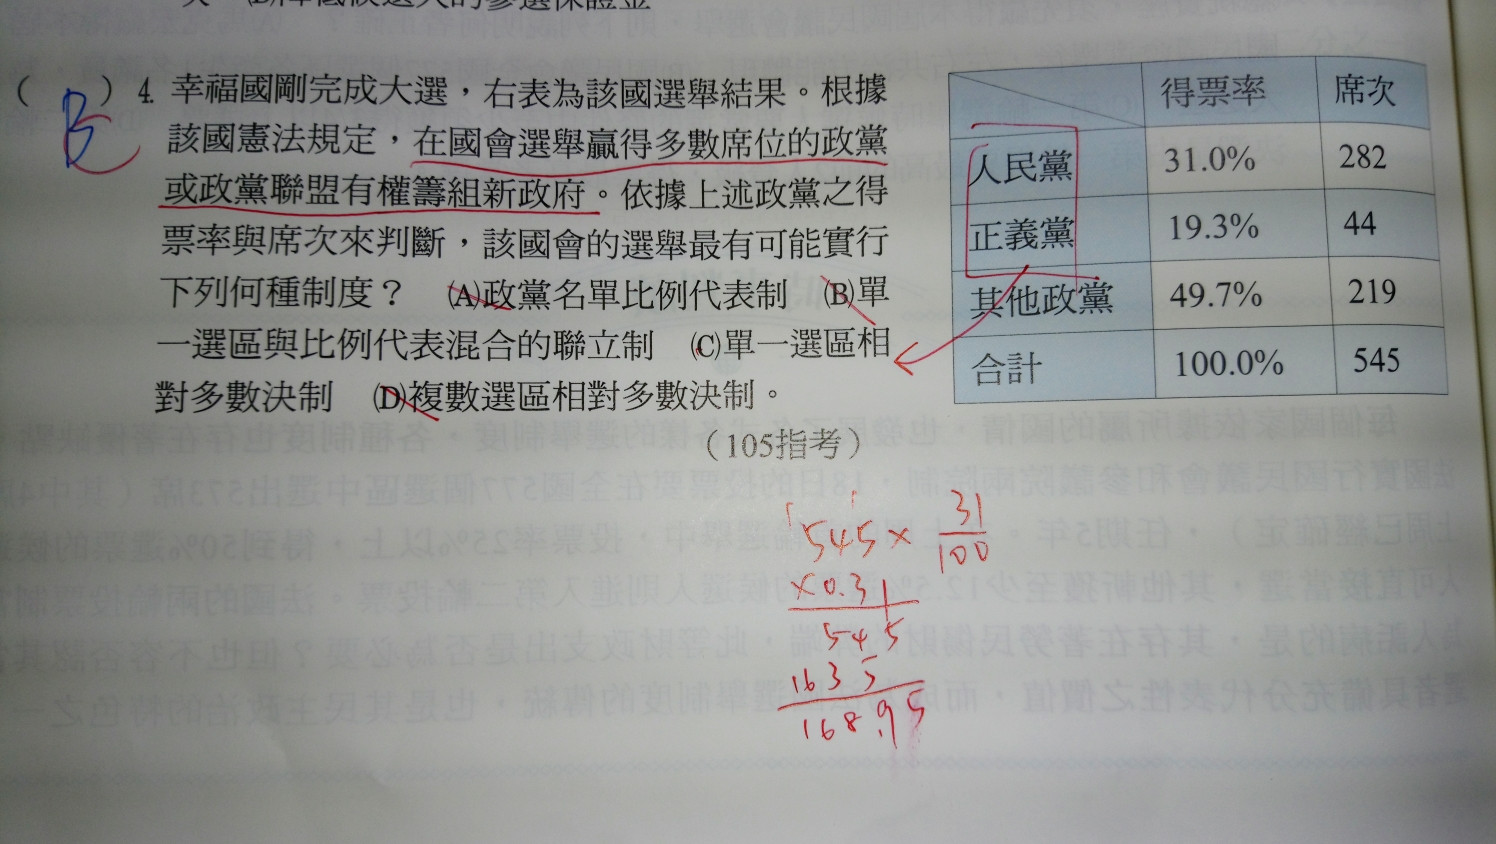 (B)降低候選人的參選保證金
( B ) 4. 幸福國剛完成大選，右表為該國選舉結果。根據
該國憲法規定，在國會選舉贏得多數席位的政黨
或政黨聯盟有權籌組新政府。依據上述政黨之得
票率與席次來判斷，該國會的選舉最有可能實行
下列何種制度？ (A)政黨名單比例代表制 (B)單
一選區與比例代表混合的聯立制 (C)單一選區相
對多數決制 (D)複數選區相對多數決制。
（105指考）
得票率 席次
人民黨 31.0% 282
正義黨 19.3% 44
其他政黨 49.7% 219
合計 100.0% 545
545× 31
100
×0.31
545
1635
168.95